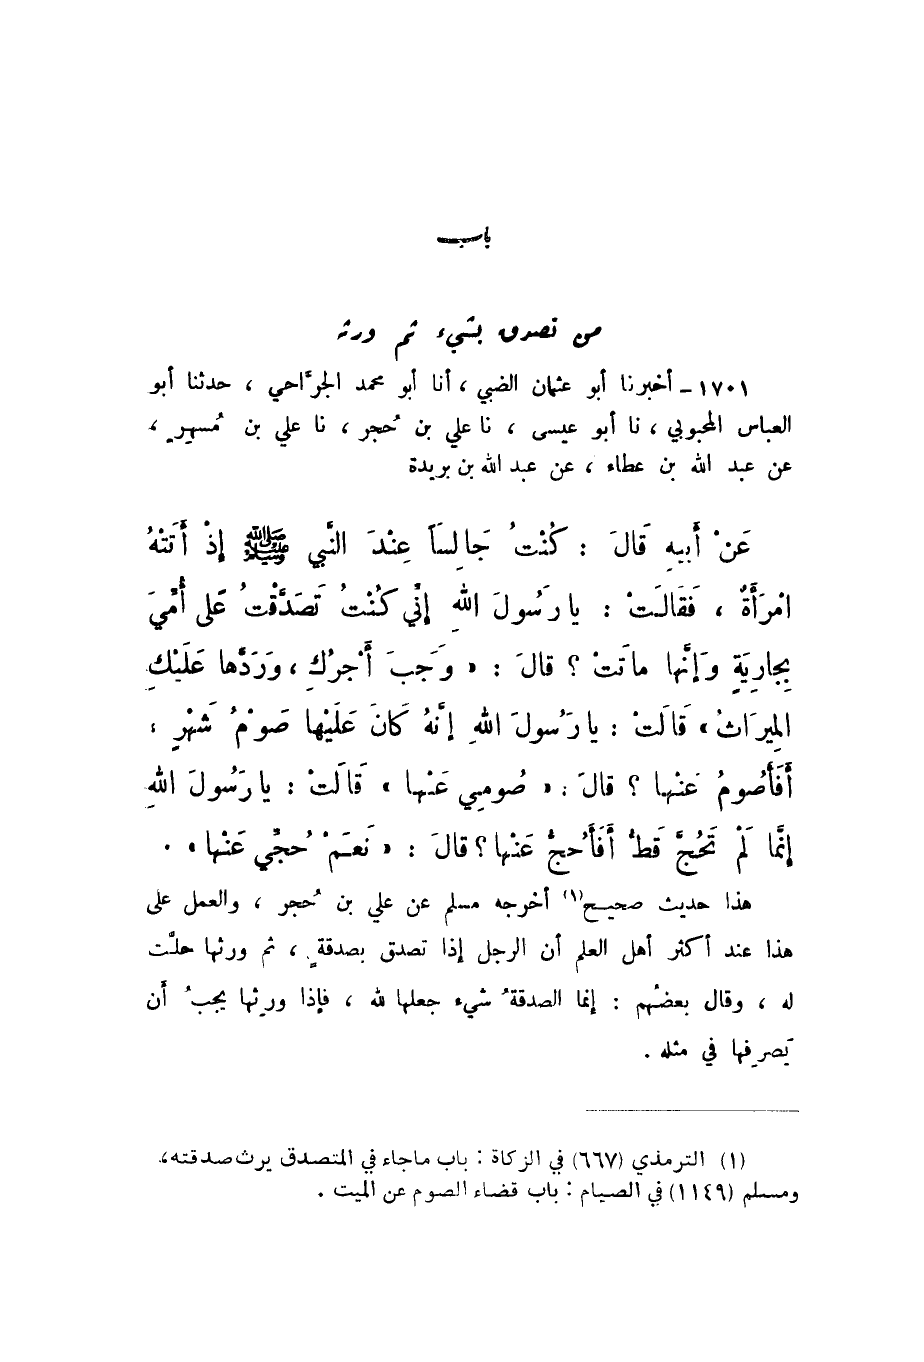 باب
من تصدق بشيء ثم ورثه
١٧٠١ - أخبرنا أبو عثمان الضبي ، أنا أبو محمد الجرَّاحي ، حدثنا أبو
العباس المحبوبي ، نا أبو عيسى ، نا علي بن حُجر ، نا علي بن مُسهرٍ ،
عن عبد الله بن عطاء ، عن عبد الله بن بريدة
عَنْ أَبيهِ قَالَ : كُنْتُ جَالِسَاً عِنْدَ النَّبي ﷺ إِذْ أَتَتْهُ
امْرَأَةٌ ، فَقَالَتْ : يا رَسُولَ اللهِ إِنِّي كُنْتُ تَصَدَّقْتُ عَلى أُمِّيَ
بِجارِيَةٍ وَإِنَّها ماتَتْ ؟ قالَ : « وَجَبَ أَجرُكِ ، وَرَدَّها عَلَيْكِ
المِيرَاثُ » قَالَتْ : يا رَسُولَ اللهِ إِنَّهُ كَانَ عَلَيْها صَوْمُ شَهْرٍ ،
أَفَأَصُومُ عَنْها ؟ قالَ : « صُومِي عَنْها » قَالَتْ : يا رَسُولَ اللهِ
إِنَّها لَمْ تَحُجَّ قَطُّ أَفَأَحُجُّ عَنْها ؟ قالَ : « نَعَمْ حُجِّي عَنْها » .
هذا حديث صحيح(١) أخرجه مسلم عن علي بن حُجر ، والعمل على
هذا عند أكثر أهل العلم أن الرجل إذا تصدق بصدقةٍ ، ثم ورثها حلَّت
له ، وقال بعضُهم : إنما الصدقةُ شيء جعلها لله ، فإذا ورثها يجبُ أن
يَصرِفها في مثله .
(١) الترمذي (٦٦٧) في الزكاة : باب ماجاء في المتصدق يرث صدقته ،
ومسلم (١١٤٩) في الصيام : باب قضاء الصوم عن الميت .